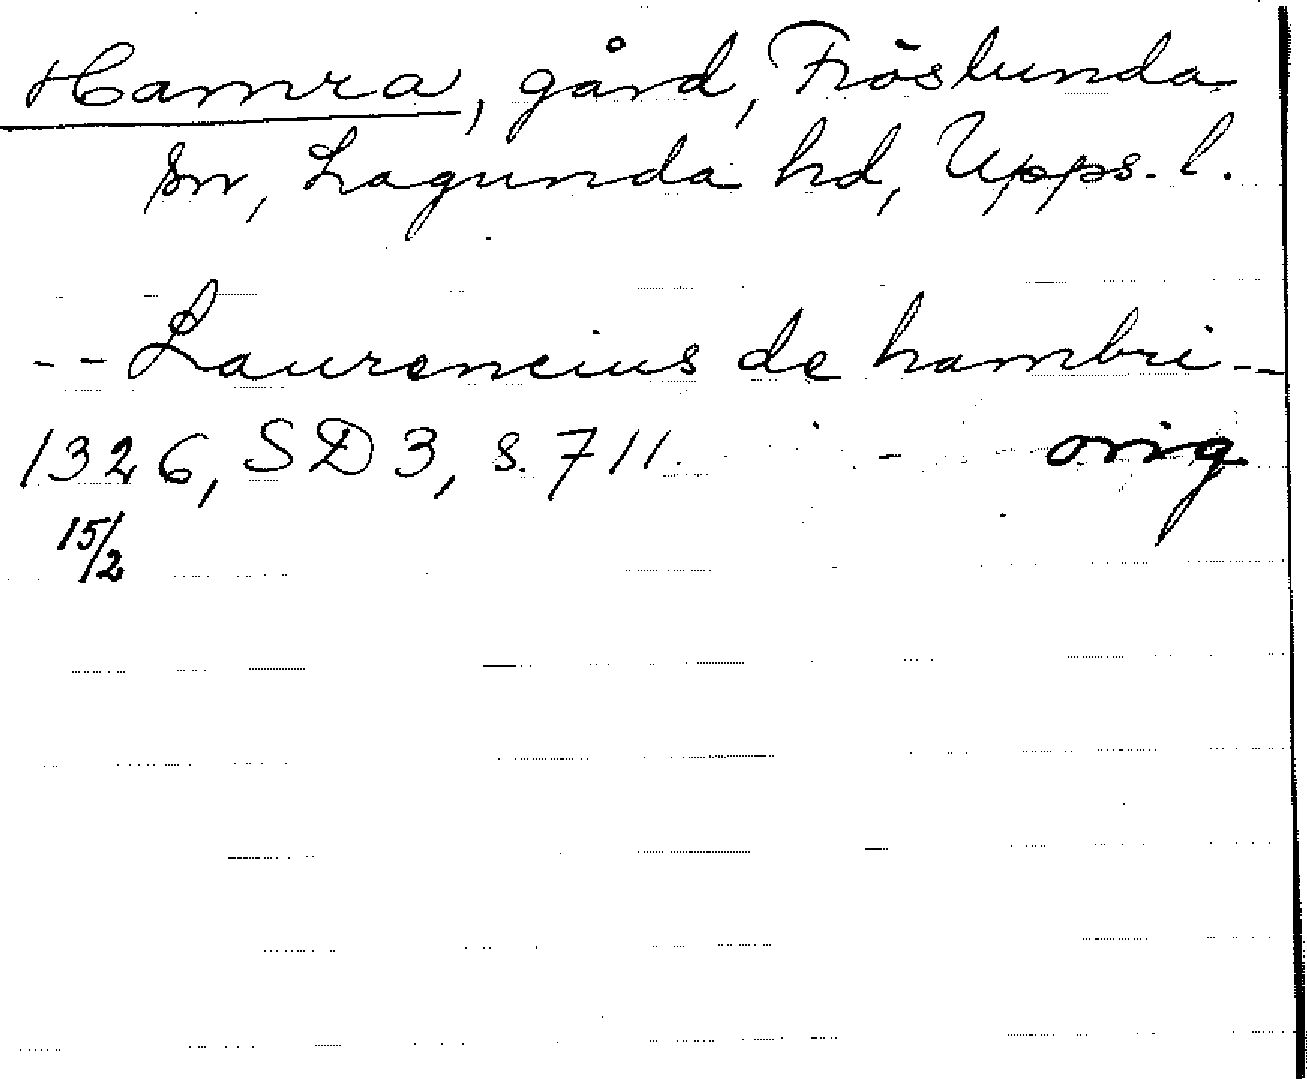 Hamra, gård, Fröslunda
sn, Lagunda hd, Upps. l.
-- Laurencius de hambri --
1326, SD 3, s. 711. orig
15/2